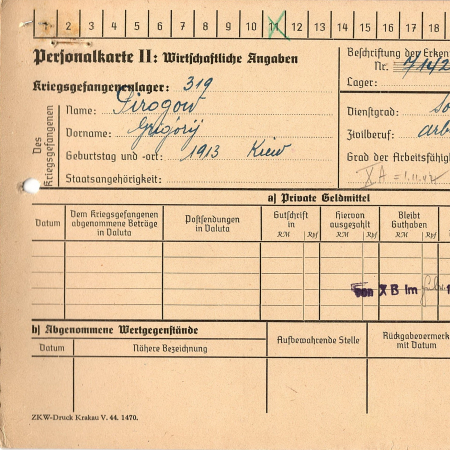 1 2 3 4 5 6 7 8 9 10 11 12 13 14 15 16 17 18
Personalkarte II: Wirtschaftliche Angaben
Beschriftung der Erken
Nr. 7142
Kriegsgefangenenlager: 319
Lager:
Des Kriegsgefangenen
Name: Pirogow
Dienstgrad: So
Vorname: Grigorij
Zivilberuf: arb
Geburtstag und -ort: 1913 Kiew
Grad der Arbeitsfähig
Staatsangehörigkeit:
X A = 1.11.42
a) Private Geldmittel
Datum
Dem Kriegsgefangenen abgenommene Beträge in Valuta
Postsendungen in Valuta
Gutschrift in
RM Rpf
Hiervon ausgezahlt
RM Rpf
Bleibt Guthaben
RM Rpf
von X B im
b) Abgenommene Wertgegenstände
Datum
Nähere Bezeichnung
Aufbewahrende Stelle
Rückgabevermerk mit Datum
ZKW-Druck Krakau V. 44. 1470.